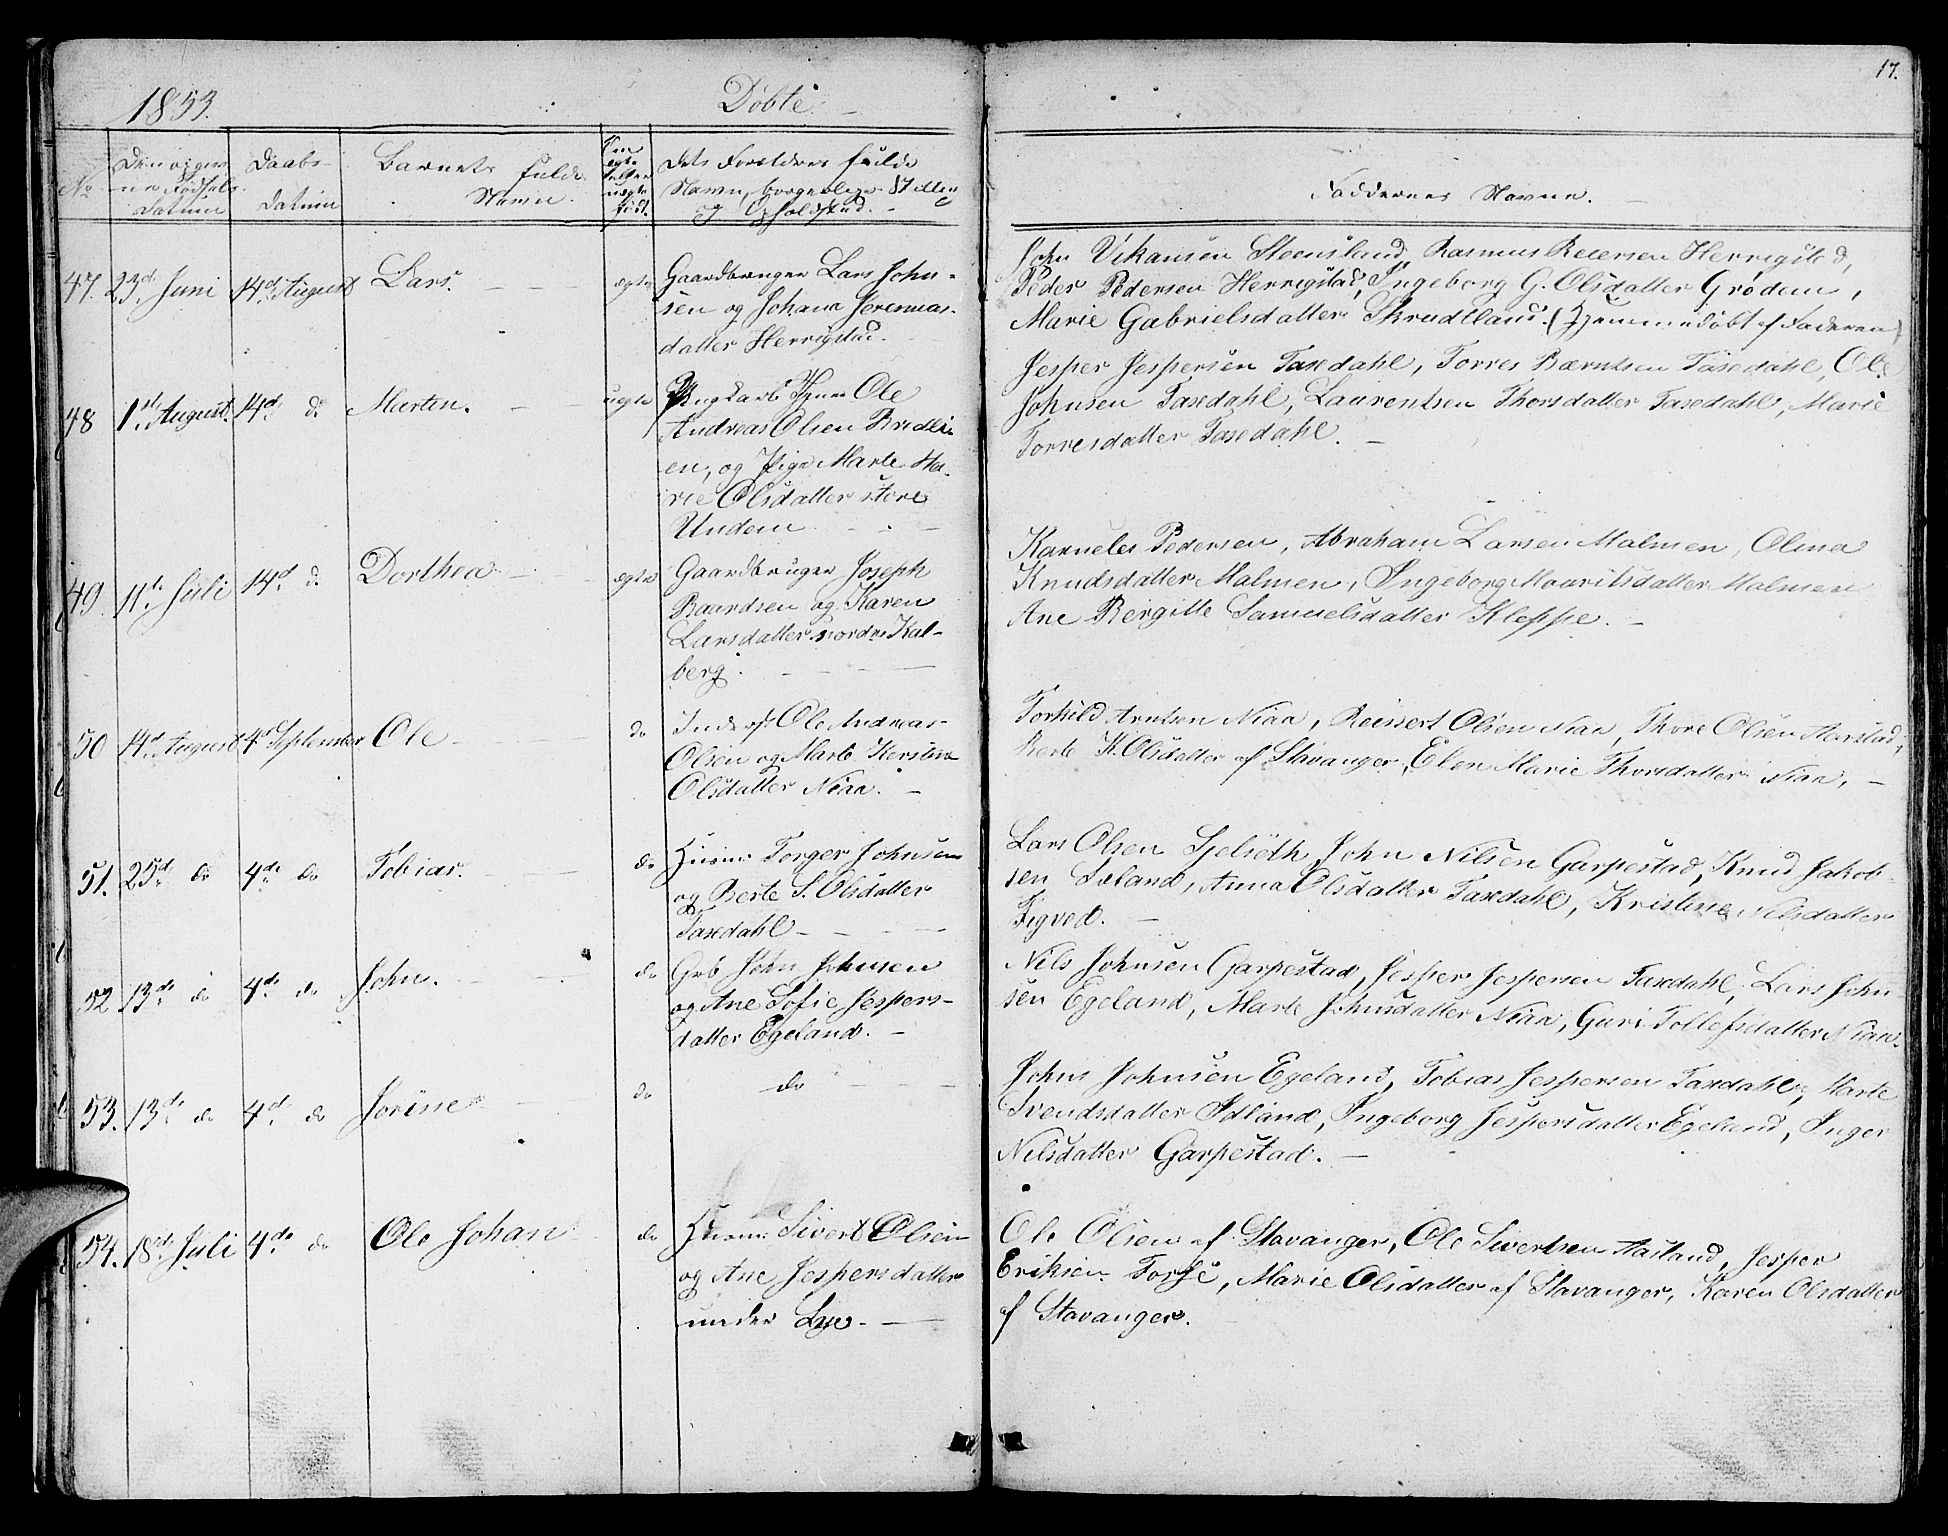 17.
1853.
Døbte.
No
Den opgivne Fødsels Datum
Daabs-Datum
Barnets fulde Navn.
Om egte eller uegte født.
Dets Forældres fulde Navn, borgerlige Stilling og Opholdsted.
Faddernes Navne.
47. 23d Juni 14d August Lars. egte
Gaardbruger Lars John-
sen og Johana Jeremias-
datter Herrigstad.
John Vikansen Steensland, Rasmus Reiersen Herrigstad,
Peder Pedersen Herrigstad, Ingeborg G. Olsdatter Grødem,
Marie Gabrielsdatter Skrudtland. (Hjemmedøbt af Faderen)
48 1st August. 14d do Marten. uegte
Ungkarl Ole
Andreas Olsen Bredli-
en, og Pige Marte Ma-
rie Olsdatter store
Undem
Jesper Jespersen Taxedahl, Torres Bærntsen Taxedahl, Ole
Johnsen Taxedahl, Laurentsen Thorsdatter Taxedahl, Marie
Torresdatter Taxedahl.
49. 11te Juli 14d do Dorthea egte
Gaardbruger Joseph
Baardsen og Karen
Larsdatter nordre Kal-
berg.
Karneles Pedersen, Abraham Larsen Malmen, Olena
Knudsdatter Malmen, Ingeborg Mauritsdatter Malmen
Ane Bergitte Samuelsdatter Kleppe.
50 14d August 4d September Ole do
Inderst Ole Andreas
Olsen og Marte Kerstine
Olsdatter Niaa.
Torkild Arntsen Niaa, Reinert Olsen Niaa, Thore Olsen Aarstad,
Berte K. Olsdatter af Stavanger, Elen Marie Thorsdatter Niaa,
51. 25d do 4de do Tobias. do
Husm: Torger Johnsen
og Berte S. Olsdatter
Taxedahl
Lars Olsen Sjelsöth, John Nilsen Garpestad, Knud Jakob-
sen Leland, Anna Olsdatter Taxdahl, Kristine Nilsdatter
Tigved.
52 13de do 4de do John. do
Grb John Johnsen
og Ane Sofie Jespers-
datter Egeland.
Nils Johnsen Garpestad, Jesper Jespersen Taxedahl, Lars John-
sen Egeland, Marte Johnsdatter Niaa, Guri Tollefsdatter Niaa.
53. 13de do 4de do Jorine do
do
Johns Johnsen Egeland, Tobias Jespersen Taxdahl, Marte
Svendsdatter Idland, Ingeborg Jespersdatter Egeland, Inger
Nilsdatter Garpestad.
54. 18de Juli 4de do Ole Johan do
Husm: Sivert Olsen
og Ane Jespersdatter
under Lye.
Ole Olsen af Stavanger, Ole Sivertsen Aasland, Jesper
Eriksen Torje, Marie Olsdatter af Stavanger, Karen Olsdatter
af Stavanger.